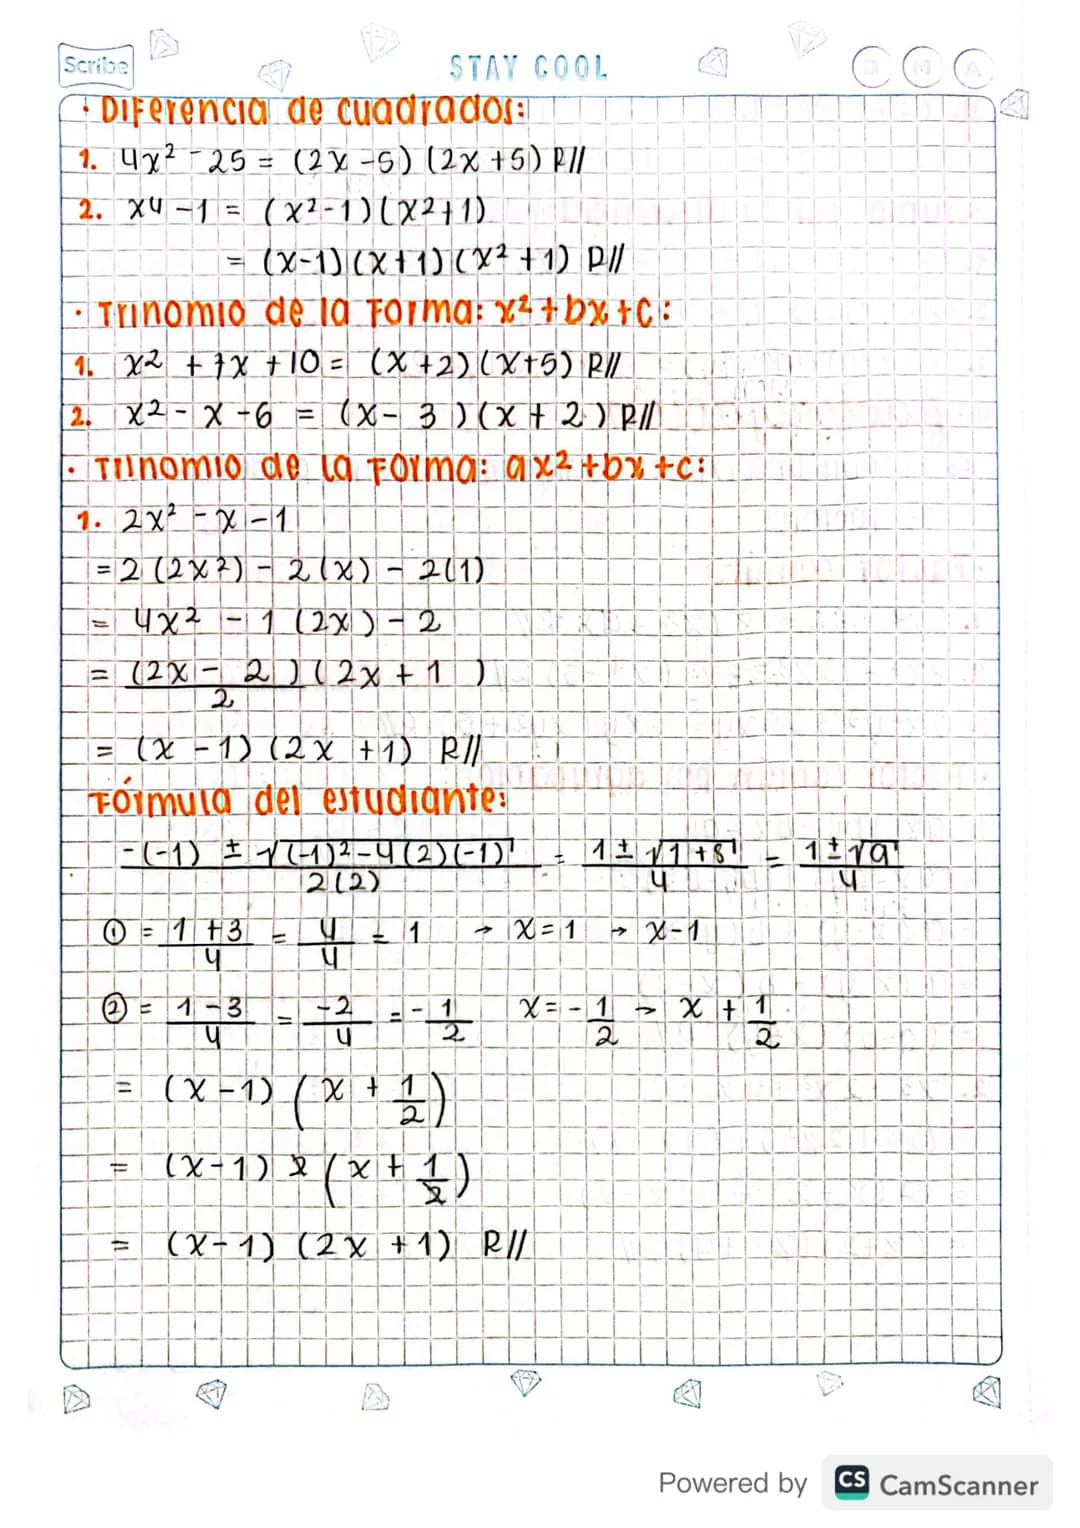 Scribe
STAY COOL
D M A
· Diferencia de cuadrados:
1. 4x² - 25 = (2x - 5) (2x + 5) R//
2. x4 - 1 = (x² - 1) (x² + 1)
= (x-1) (x+1) (x² + 1) R//
· Trinomio de la Forma: x² + bx + c:
1. x² + 7x + 10 = (x + 2) (x + 5) R//
2. x² - x - 6 = (x - 3) (x + 2) R//
· Trinomio de la Forma: ax² + bx + c:
1. 2x² - x - 1
= 2 (2x²) - 2 (x) - 2(1)
= 4x² - 1 (2x) - 2
= (2x - 2) (2x + 1)
2
= (x - 1) (2x + 1) R//
Fórmula del estudiante:
-(-1) ± √(-1)² - 4(2)(-1) = 1 ± √1 + 8 = 1 ± √9
2(2) 4 4
① = 1 + 3 = 4 = 1 → x = 1 → x - 1
4 4
② = 1 - 3 = -2 = - 1 x = - 1 → x + 1
4 4 2 2 2
= (x - 1) (x + 1)
2
= (x - 1) 2 (x + 1)
2
= (x - 1) (2x + 1) R//
Powered by CS CamScanner